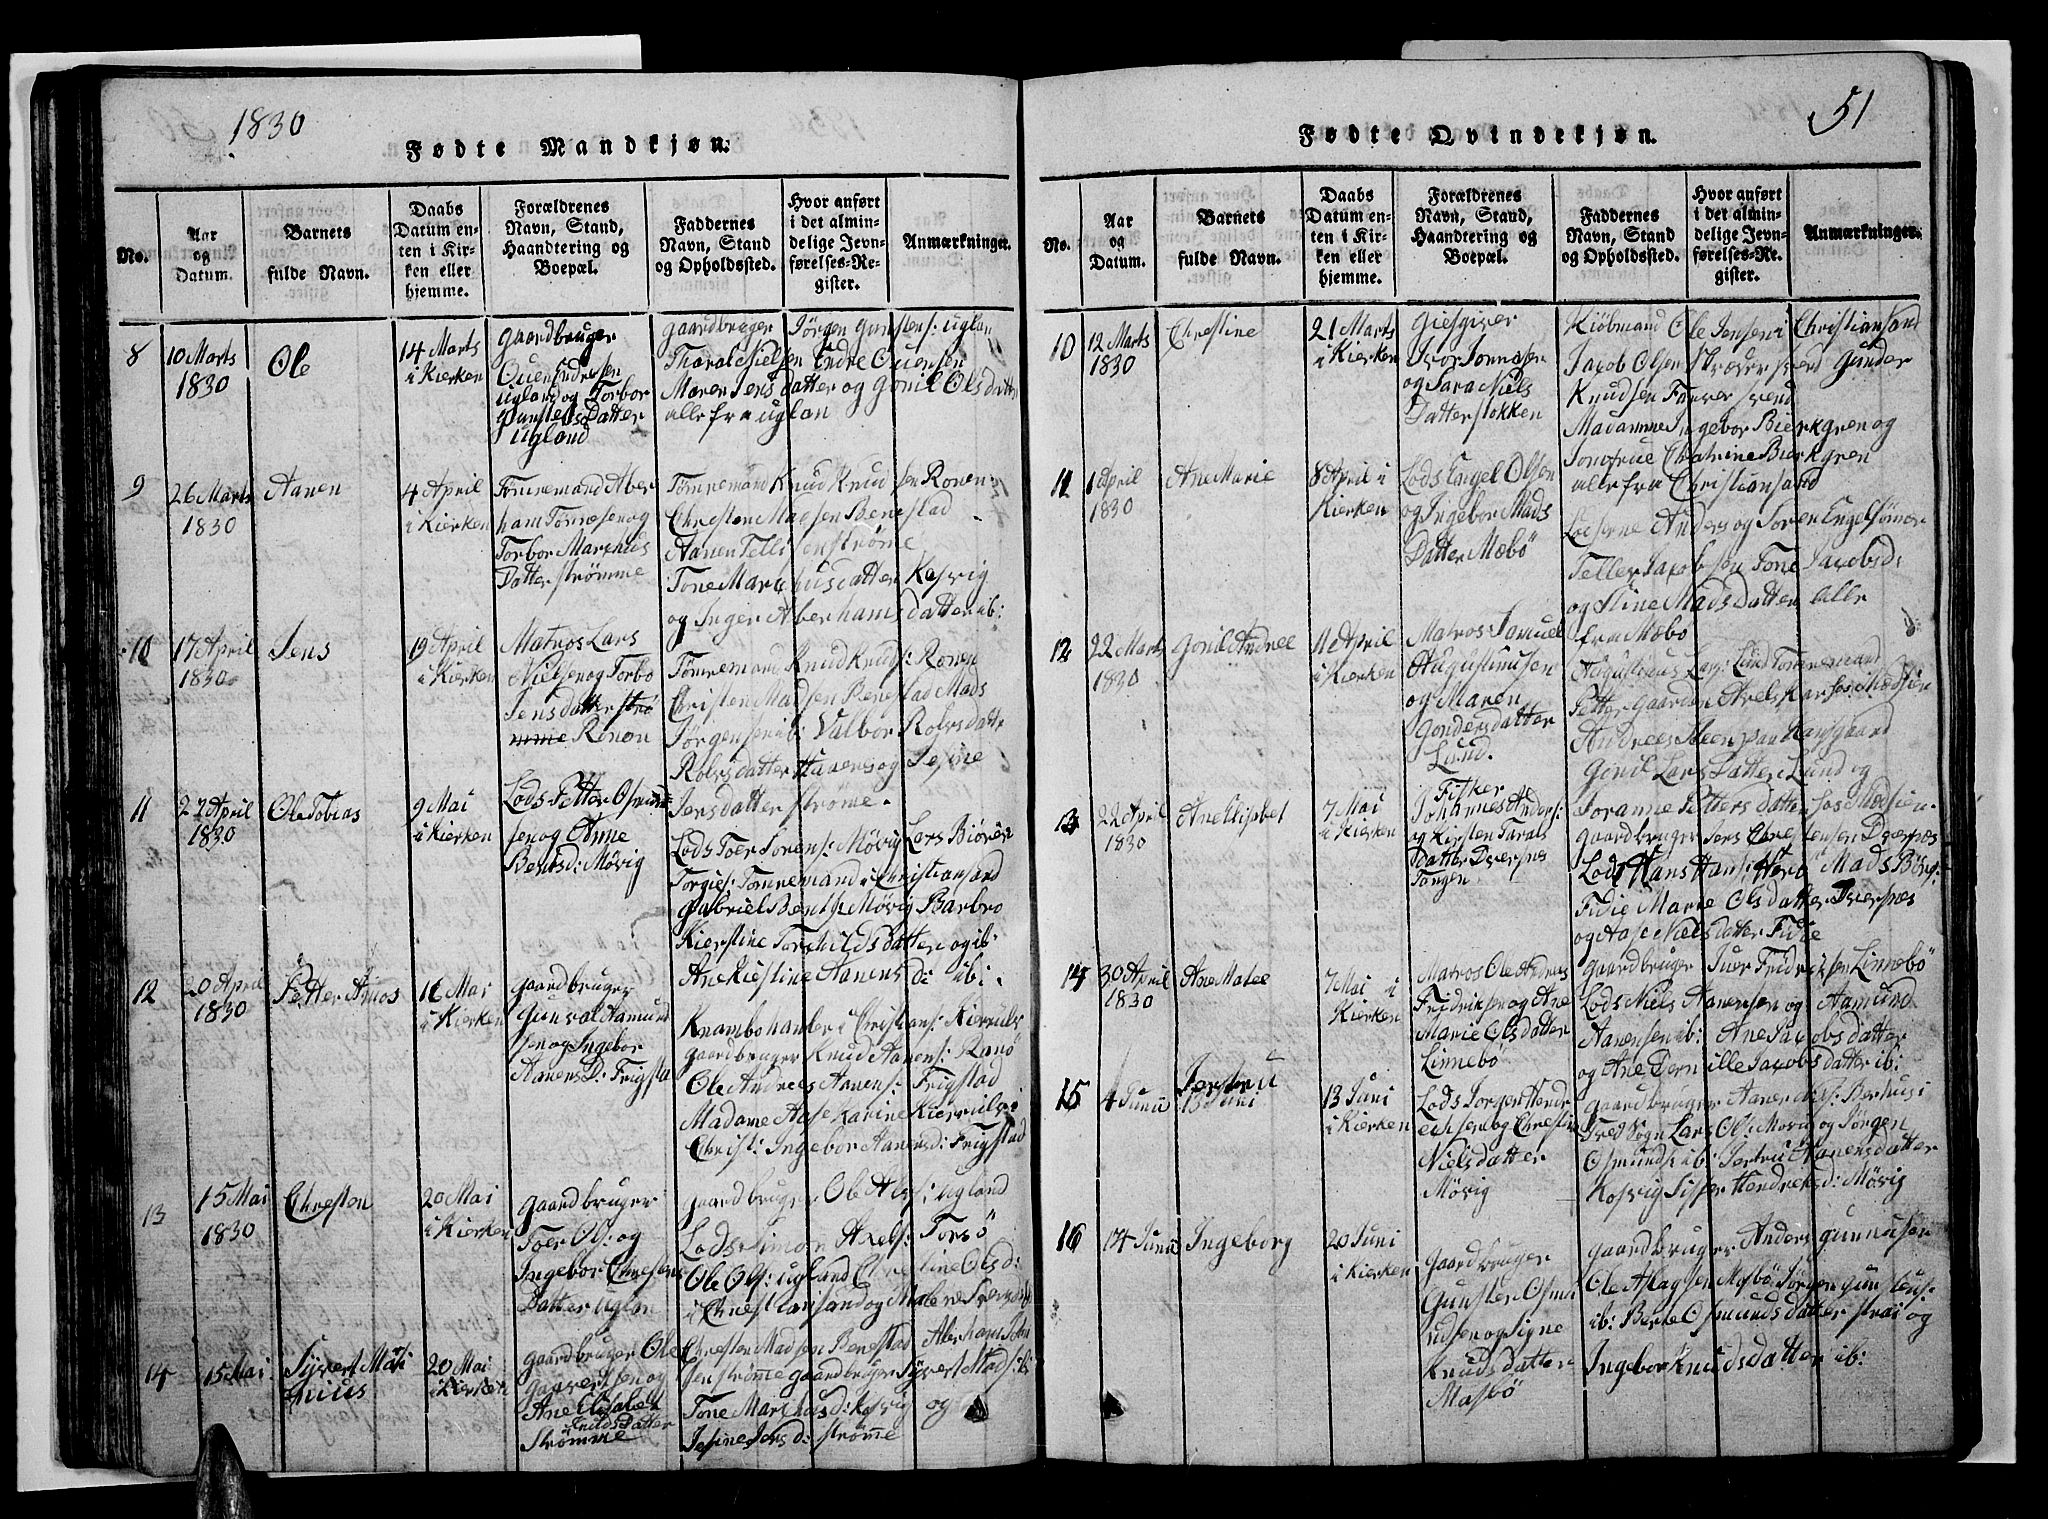 1830
Fødte Mandkjøn.
No.
Aar
og
Datum.
Barnets
fulde Navn.
Daabs
Datum en-
ten i Kir-
ken eller
hjemme.
Forældrenes
Navn, Stand,
Haandtering og
Boepæl.
Faddernes
Navn, Stand
og Opholdssted.
Hvor anført
i det almin-
delige Jevn-
førelses-Re-
gister.
Anmærkninger.
8
10 Marts
1830
Ole
14 Marts
i Kierken
gaardbruger
Ouen Endresen
Ugland og Torbor
Gunstens Datter
Ugland
gaardbruger Jörgen Gunstens: Uglan
Tharal Nielsen Endre Ouensen
Maren Jens datter og Gonil Ols datter
alle fra uglan
9
26 Marts
1830
Aanen
4 April
i Kierken
Tömremand Aber
ham Tönnesen og
Torbor Marchus
Datter strömme
Tömremand Knud Knudsen Ronen
Chresten Madsen Benestad
Aanen Tellisen ströme
Tone Marchusdatter Kosvig
og Inger Aberhams datter ib:
10
17 April
1830
Jens
19 April
i Kierken
Matros Lars
Nielsen og Torbo
Jens datter strö
mme Ronon
Tömremand Knud Knuds: Ronen
Christen Madsen Benestad Mads
Jörgensen ib: Valbor Robrsdatte
Robrsdatter Haanes og Jesine
Jensdatter ströme.
11
22 April
1830
Ole Tobias
9 Mai
i Kierken
Lods Petter Osmun
sen og Anne
Bentsd: Mövig
Lods Toer Sorens: Mövig Lars Biörn
Torgies: Tömremand i Christiansand
Gabriel Bents: Mövig Barbro
Kierstine Torkildsdatter og ib:
Ane Kiestine Aanens d: ib:
12
20 April
1830
Petter Amos
16 Mai
i Kierken
gaardbruger
Gunval Aamund
sen og Ingebor
Aanens D: Frigsta
gaardbruger Knud Aanens: Ranö
Ole Andrees Aanens: Frigstad
Madame Aase Karine Kierruls i
Christ: Ingebor Aanensd: Frigstad
13
15 Mai
1830
Chresten
20 Mai
i Kierken
gaardbruger
Toer Ols: og
Ingebor Chrestens
Datter uglan
gaardbruger Ole Als: ugland
Lods Simon Axels: Torsö
Ole Ols: ugland Chrestine Olsd:
i Chrestiansand og Malene
14
15 Mai
Syvert Mati
nius
20 Mai
i Kierken
gaardbruger Ole
gaaversen og
Ane Elisabet
Knuds Datter
Strömme
Chresten Madsen Benestad Aberham Tön
sen strömme gaardbruger Syvert Mads: ib:
Tone Marchusd: Kosvig og
Jesine Jens d: ströme
51
Fødte Qvindekjøn.
No.
Aar
og
Datum.
Barnets
fulde Navn.
Daabs
Datum en-
ten i Kir-
ken eller
hjemme.
Forældrenes
Navn, Stand,
Haandtering og
Boepæl.
Faddernes
Navn, Stand
og Opholdssted.
Hvor anført
i det almin-
delige Jevn-
førelses-Re-
gister.
Anmærkninger.
10
12 Marts
1830
Chrestine
21 Marts
i Kierken
Giesgiver
Ivor Jonnasen
og Sara Niels
Datter stokken
Kiöbmand Ole Jensen i Christiansand
Jacob Olsen Skræder svend Gunder
Knudsen Farver svend
Madamme Ingebor Bierkgren og
Jomfrue Chatrine Bierkgren
alle fra Christiansand
11
1 April
1830
Ane Marie
8 April i
Kierken
Lods Engel Olsen
og Ingebor Mads
Datter Mæbö
Lodserne Anders og Soren Engels sönner
Tellef Jacobsen Tone Jacobsd:
og Stine Mads datter alle
fra Mæbö
12
22 Marts
1830
Gonil Andree
11 April
i Kierken
Matros Samuel
Augustinusen
og Maren
Gondersdatter
Lund.
Augustinus Lars: Lund Tömremand
Andrees Steen paa Kongsgaard
Gonil Lars Datter Lund og
13
22 April
1830
Ane Elisabet
7 Mai
i Kierken
Fisker
Johannes Anders:
og Kirsten Tarals
Datter Dversnes
Tangen
Joranne Petters datter fos Mödsien.
gaardbruger Jens Chrestensen Dversnes
Lods Hans Hans: Herö Mads Börg:
Fidie Marie Olsdatter Dversnes
og Aase Niels datter Fidie
14
30 April
1830
Ane Malee
7 Mai i
Kierken
Matros Ole Andreas
Fridriksen og Ane
Marie Olsdatter
Linnebö
gaardbruger Iver Fridriksen Linnebö
Lods Niels Aanensen og Aamund
Aanensen ib: Ane Jacobsdatter
og Ane Pernille Jacobsdatter ib:
15
4 Junii
Jertru
13 Juni
13 Juni
i Kierken
Lods Jörgen Hendr
echsen og Chrestin
Nielsdatter
Mövig
gaardbruger Aanen Ols: Berhus i
Tved Sogn Lars Ols: Movig og Jörgen
Osmunds: ib: Jertru Aanensdatter
Kosvig Sisser Hendreksd: Mövig
16
14 Junii
Ingeborg
20 Juni
i Kierken
gaardbruger
Gunster Osmu
ndsen og Signe
Knuds datter
Masbö
gaardbruger Anders Gunnusen
Ole Alagsen Mosbö Jörgen Gunstens:
ib: Berte Osmunds datter strai og
Ingebor Knudsdatter ib: